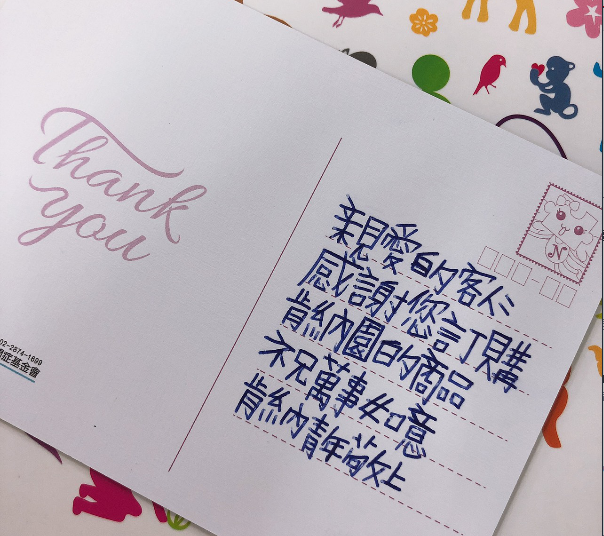 Thank
you
親愛的客人:
感謝您訂購
肯納園的商品
祝萬事如意
肯納青年敬上
N
02-2874-1699
基金會